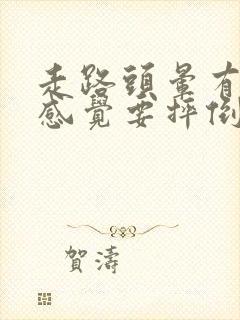 走路頭暈有
感覺要摔倒
賀濤